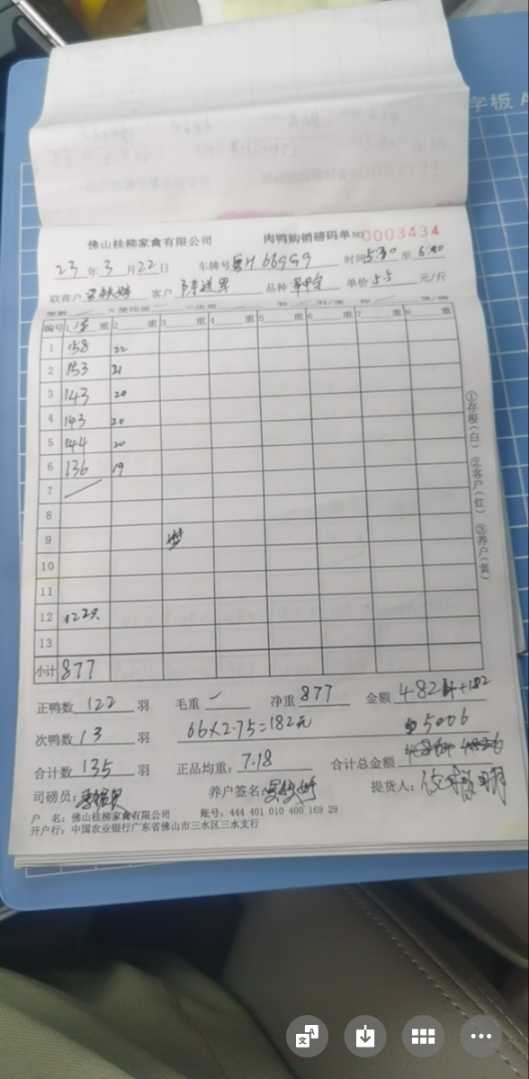 字板 A
佛山桂柳家禽有限公司 肉鸭购销磅码单 NO 0003434
23 年 3 月 22 日 车牌号 66999 时间 5:30 至
联营户 客户 品种 单价 5.5 元/斤
编号 1 重 2 重 3 重 4 重 5 重 6 重 7 重 8 重
1 158 22
2 153 21
3 143 20
4 143 20
5 144 20
6 136 19
7
8
9
10
11
12 122只
13
小计 877
①存根(白) ②客户(红) ③养户(黄)
正鸭数 122 羽 毛重 净重 877 金额 4824+182
次鸭数 13 羽 66×2.75=182元 5006
合计数 135 羽 正品均重: 7.18 合计总金额
司磅员: 养户签名: 提货人:
户 名: 佛山桂柳家禽有限公司 账号: 444 401 010 400 169 29
开户行: 中国农业银行广东省佛山市三水区三水支行